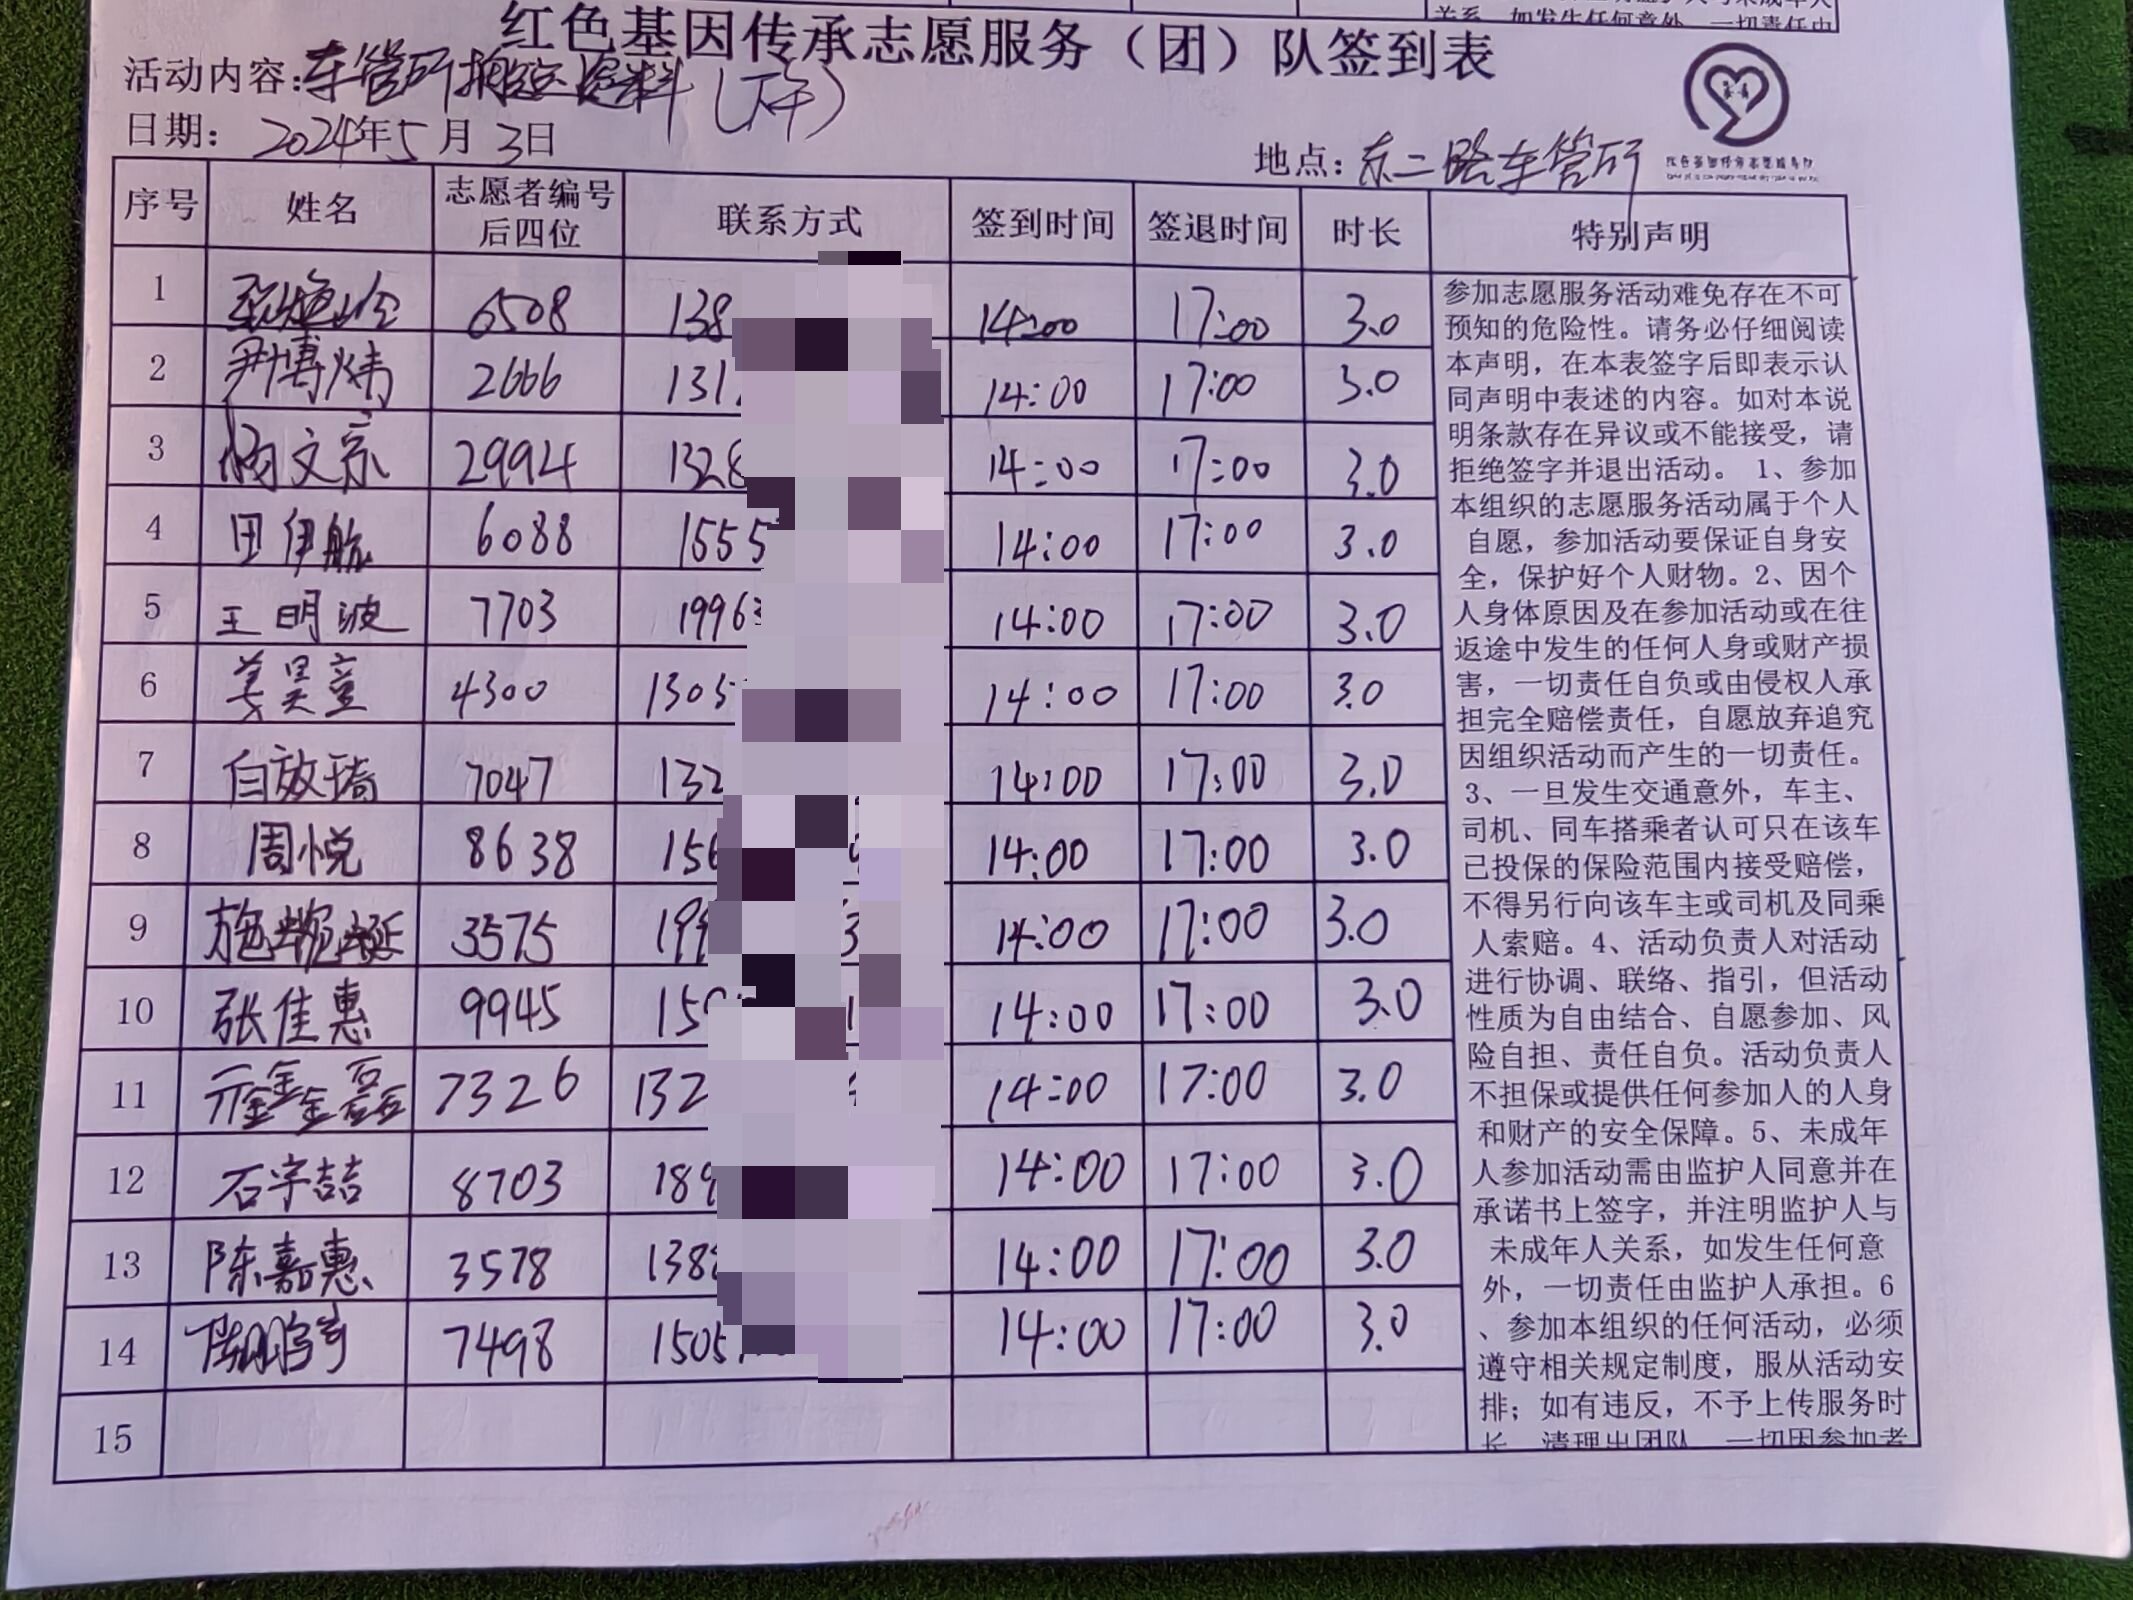 关系，如发生任何意外，一切责任由
红色基因传承志愿服务（团）队签到表
活动内容：车管所 (下午)
日期： 2024年5月3日
地点：东二路车管所
序号 姓名 志愿者编号后四位 联系方式 签到时间 签退时间 时长 特别声明
1 6508 138 14:00 17:00 3.0
2 尹博炜 2666 131 14:00 17:00 3.0
3 杨文京 2994 1328 14:00 17:00 3.0
4 田伊航 6088 1555 14:00 17:00 3.0
5 王明波 7703 1996 14:00 17:00 3.0
6 姜昊童 4300 1305 14:00 17:00 3.0
7 白效琦 7047 132 14:00 17:00 3.0
8 周悦 8638 156 14:00 17:00 3.0
9 3575 199 14:00 17:00 3.0
10 张佳惠 9945 159 14:00 17:00 3.0
11 亓鑫磊 7326 132 14:00 17:00 3.0
12 石宇喆 8703 189 14:00 17:00 3.0
13 陈嘉惠 3578 138 14:00 17:00 3.0
14 陈鹏宇 7498 1505 14:00 17:00 3.0
15
参加志愿服务活动难免存在不可
预知的危险性。请务必仔细阅读
本声明，在本表签字后即表示认
同声明中表述的内容。如对本说
明条款存在异议或不能接受，请
拒绝签字并退出活动。 1、参加
本组织的志愿服务活动属于个人
自愿，参加活动要保证自身安
全，保护好个人财物。2、因个
人身体原因及在参加活动或在往
返途中发生的任何人身或财产损
害，一切责任自负或由侵权人承
担完全赔偿责任，自愿放弃追究
因组织活动而产生的一切责任。
3、一旦发生交通意外，车主、
司机、同车搭乘者认可只在该车
已投保的保险范围内接受赔偿，
不得另行向该车主或司机及同乘
人索赔。4、活动负责人对活动
进行协调、联络、指引，但活动
性质为自由结合、自愿参加、风
险自担、责任自负。活动负责人
不担保或提供任何参加人的人身
和财产的安全保障。5、未成年
人参加活动需由监护人同意并在
承诺书上签字，并注明监护人与
未成年人关系，如发生任何意
外，一切责任由监护人承担。6
、参加本组织的任何活动，必须
遵守相关规定制度，服从活动安
排；如有违反，不予上传服务时
长，清理出团队，一切因参加者